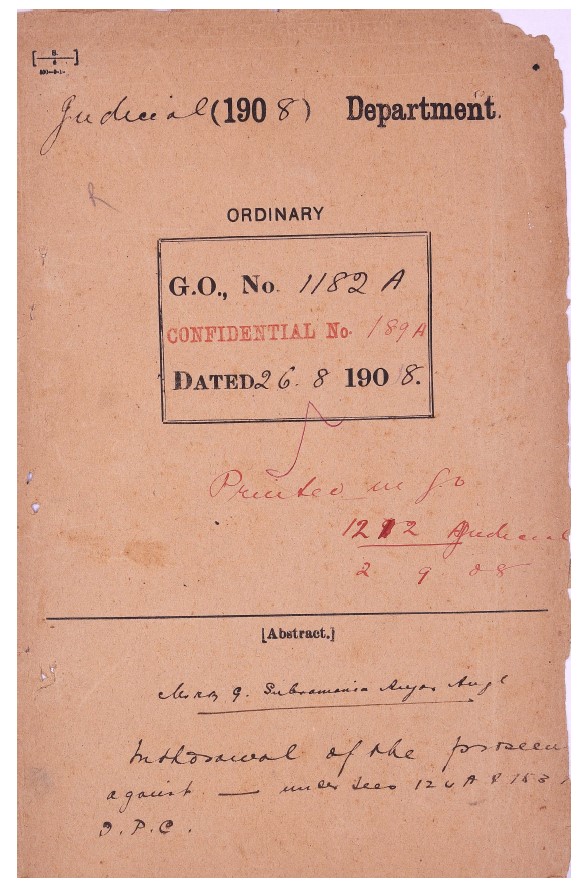 Judicial (1908) Department.
ORDINARY
G.O., No. 1182 A
CONFIDENTIAL No. 189A
DATED 26. 8 1908.
Printed in G.O
1212 Judicial
2 9 08
[Abstract.]
G. Subramania Aiyar
Withdrawal of the prosecu
against — under Secs 124 A & 153
I.P.C.